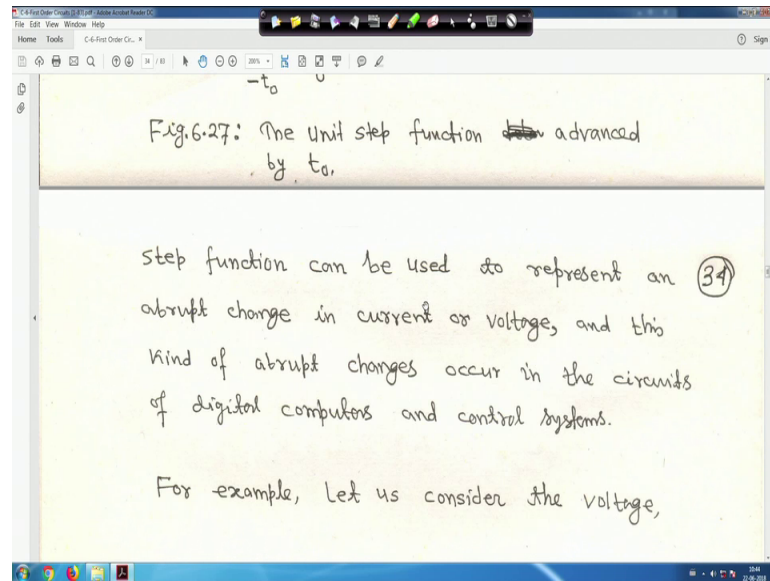 C-6-First Order Circuits [1-83].pdf - Adobe Acrobat Reader DC
File Edit View Window Help
Home Tools C-6-First Order Cir... × Sign
34 / 83 200%
-t₀ 0
Fig.6.27: The unit step function advanced
by t₀.
step function can be used to represent an 34
abrupt change in current or voltage, and this
kind of abrupt changes occur in the circuits
of digital computers and control systems.
For example, Let us consider the voltage,
10:44
22-06-2019